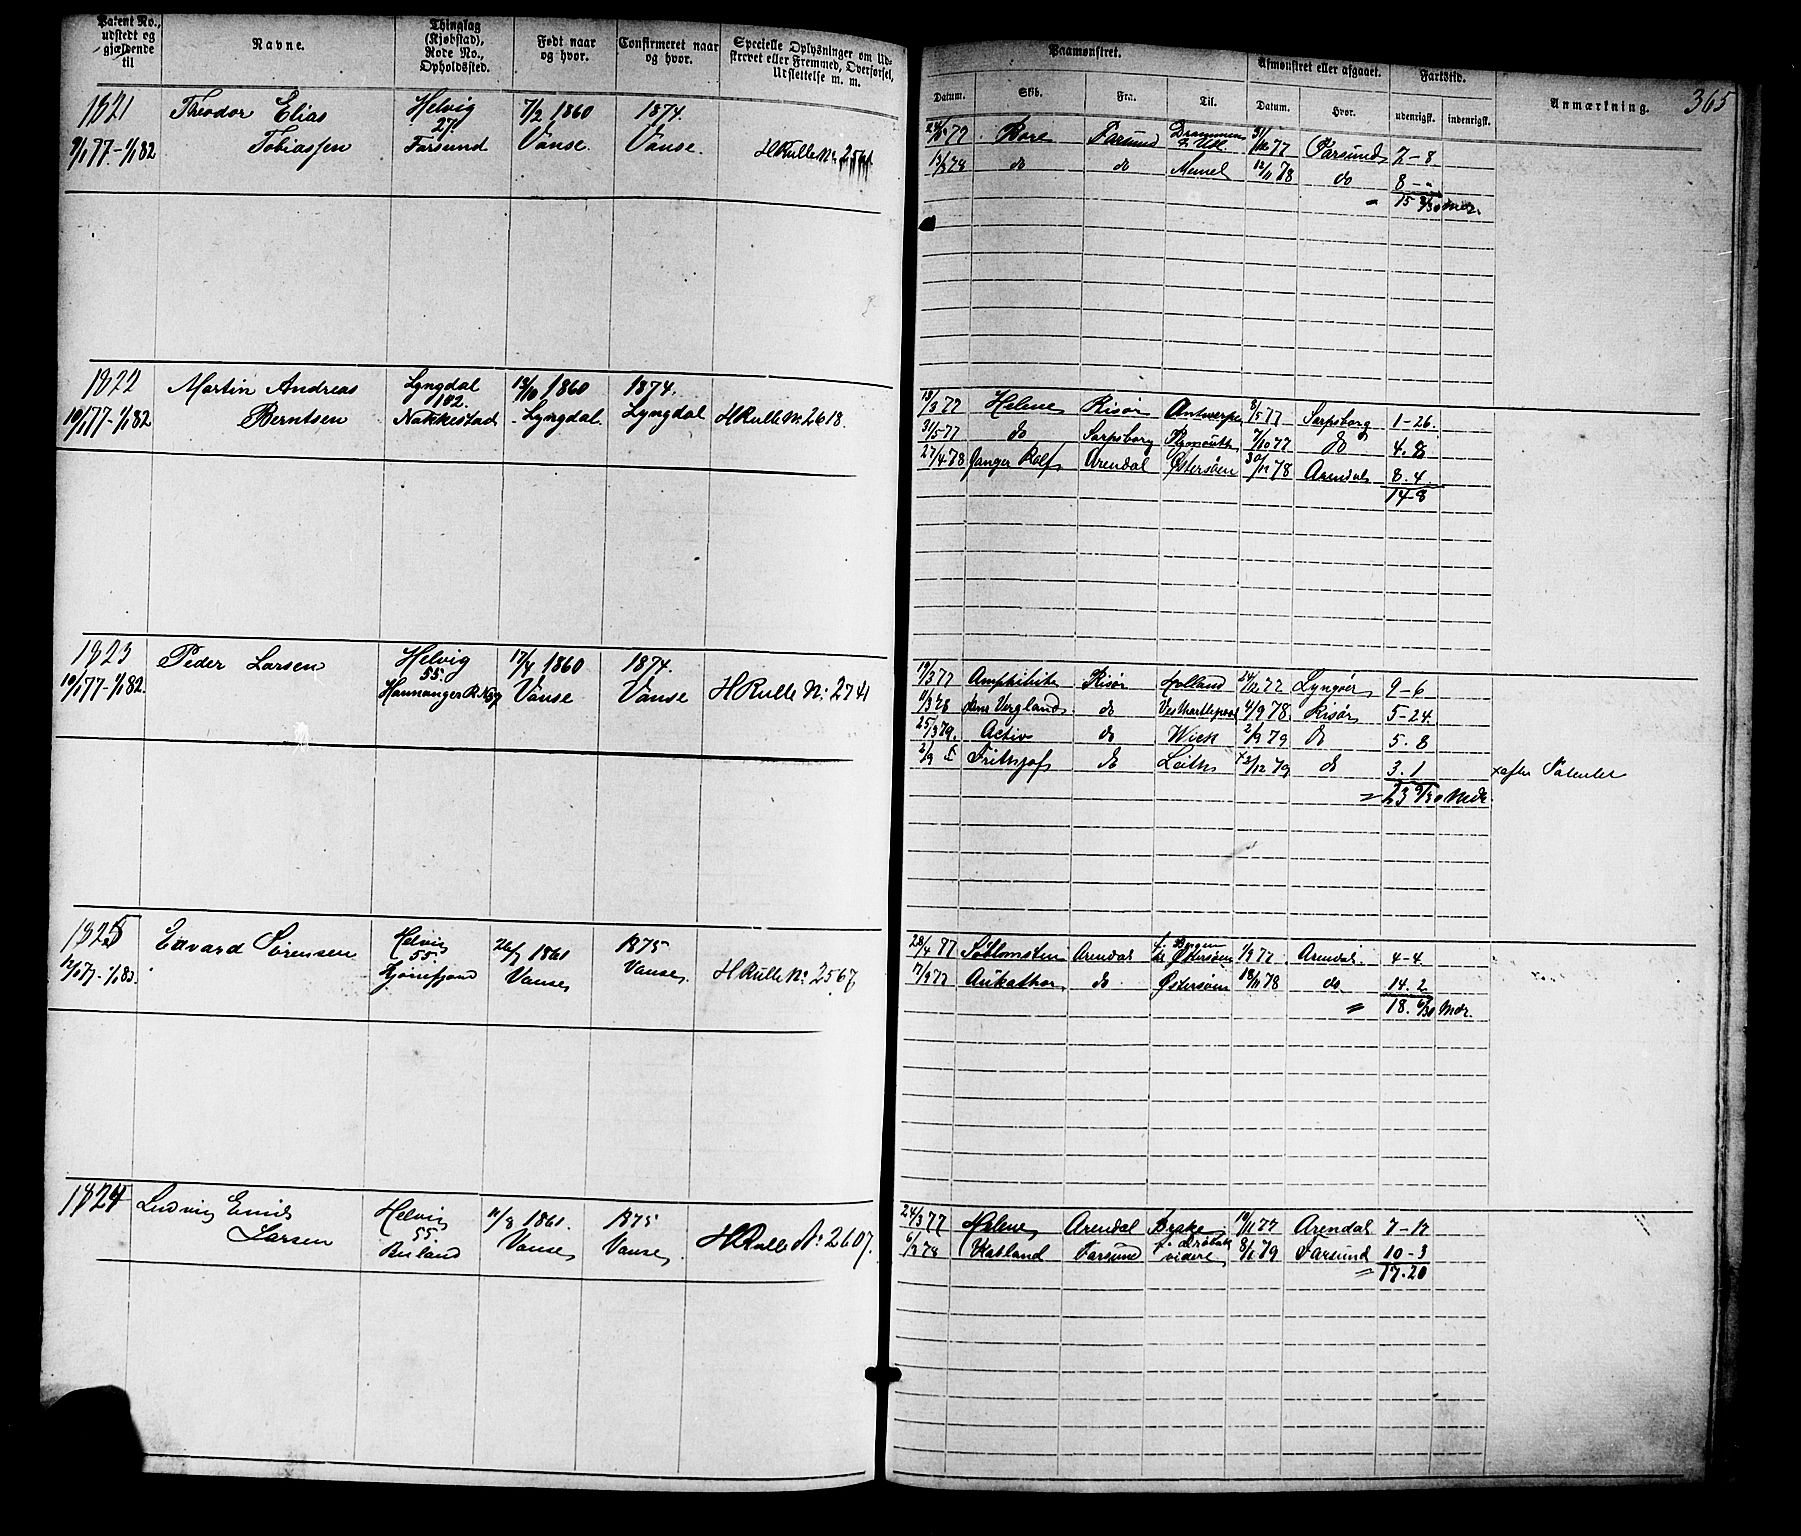 365
Patent No., udstedt og gjældende til
Navne.
Thinglag (Kjøbstad), Rode No., Opholdssted.
Født naar og hvor.
Confirmeret naar og hvor.
Specielle Oplysninger om Udskrevet eller Fremmed, Overførsel, Udslettelse m. m.
Paamønstret.
Afmønstret eller afgaaet.
Fartstid.
Anmærkning.
Datum. Skib. Fra. Til. Datum. Hvor. udenrigsk. indenrigsk.
1821 Theodor Elias Helvig 7/2 1860 1874.
27.
9/1 77-1/1 82 Tobiassen Farsund Vanse. Vanse. HRulle No.
77. Farsund Drammen 31/12 77 Farsund 7-8
78 do do Memel 12/11 78 do 8-"
15 8/30 Mdr.
1822 Martin Andreas Lyngdal 13/10 1860 1874.
102.
10/1 77-1/1 82 Berntsen Nakkestad Lyngdal. Lyngdal HRulle No. 2618.
13/3 77 Helene Risør 8/5 77 Sarpsborg 1-26.
31/5 77 do Sarpsborg Plymouth 7/10 77 do 4.8
27/4 78 Ganger Rolf Arendal Østersøen 30/12 78 Arendal 8.4
14-8
1823 Peder Larsen Helvig 17/4 1860 1874.
55.
10/1 77-1/1 82. Vanse Vanse HRulle No. 2741
19/3 77 Risør Holland 24/12 77 Lyngør 9-6
11/3 78 Vergland. do Vesthartlepool 4/9 78. Risør 5-24
25/3 79. Activ do Wick 2/9 79 do 5.8
2/9 x Frithjof do Leith x 2/12 79 do 3.1 x efter Patentet
= 23 9/30 Mdr.
1825 Edvard Sørensen Helvig 26/7 1861 1875
55.
Vanse Vanse HRulle No. 2567
28/4 77 Arendal Bergen
Østersøen 1/9 77 Arendal. 4-4
7/9 77 do Østersøen 18/11 78 do 14.2
= 18. 6/30 Mdr.
1824 Ludvig Emil Helvig 11/8 1861. 1875
55.
Larsen Buland Vanse Vanse HRulle No. 2607.
24/3 77 Helene Arendal Brake 10/11 77 Arendal 7-17
6/3 78 Farsund videre 8/1 79 Farsund 10-3
= 17.20